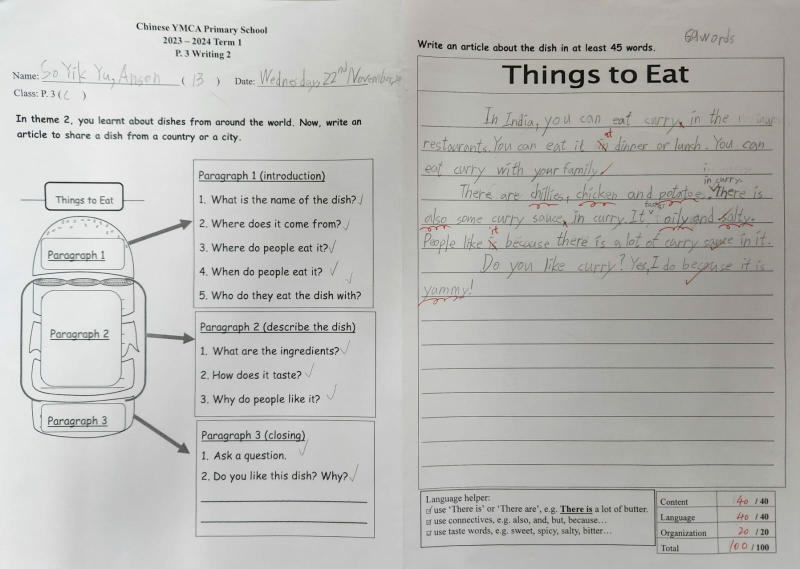 Chinese YMCA Primary School
2023 – 2024 Term 1
P. 3 Writing 2
Name: So Yik Yu, Anson ( 13 ) Date: Wednesday, 22nd November
Class: P. 3 ( C )
In theme 2, you learnt about dishes from around the world. Now, write an
article to share a dish from a country or a city.
Things to Eat
Paragraph 1
Paragraph 2
Paragraph 3
Paragraph 1 (introduction)
1. What is the name of the dish?
2. Where does it come from?
3. Where do people eat it?
4. When do people eat it?
5. Who do they eat the dish with?
Paragraph 2 (describe the dish)
1. What are the ingredients?
2. How does it taste?
3. Why do people like it?
Paragraph 3 (closing)
1. Ask a question.
2. Do you like this dish? Why?
Write an article about the dish in at least 45 words.
69 words
Things to Eat
In India, you can eat curry in the
restaurants. You can eat it at dinner or lunch. You can
eat curry with your family.
in curry
There are chillies, chicken and potatoe. There is
also some curry sauce in curry. It oily and salty.
People like it because there is a lot of curry sauce in it.
Do you like curry? Yes, I do because it is
yammy!
Language helper:
use ‘There is’ or ‘There are’, e.g. There is a lot of butter.
use connectives, e.g. also, and, but, because…
use taste words, e.g. sweet, spicy, salty, bitter…
Content 40 / 40
Language 40 / 40
Organization 20 / 20
Total 100 / 100